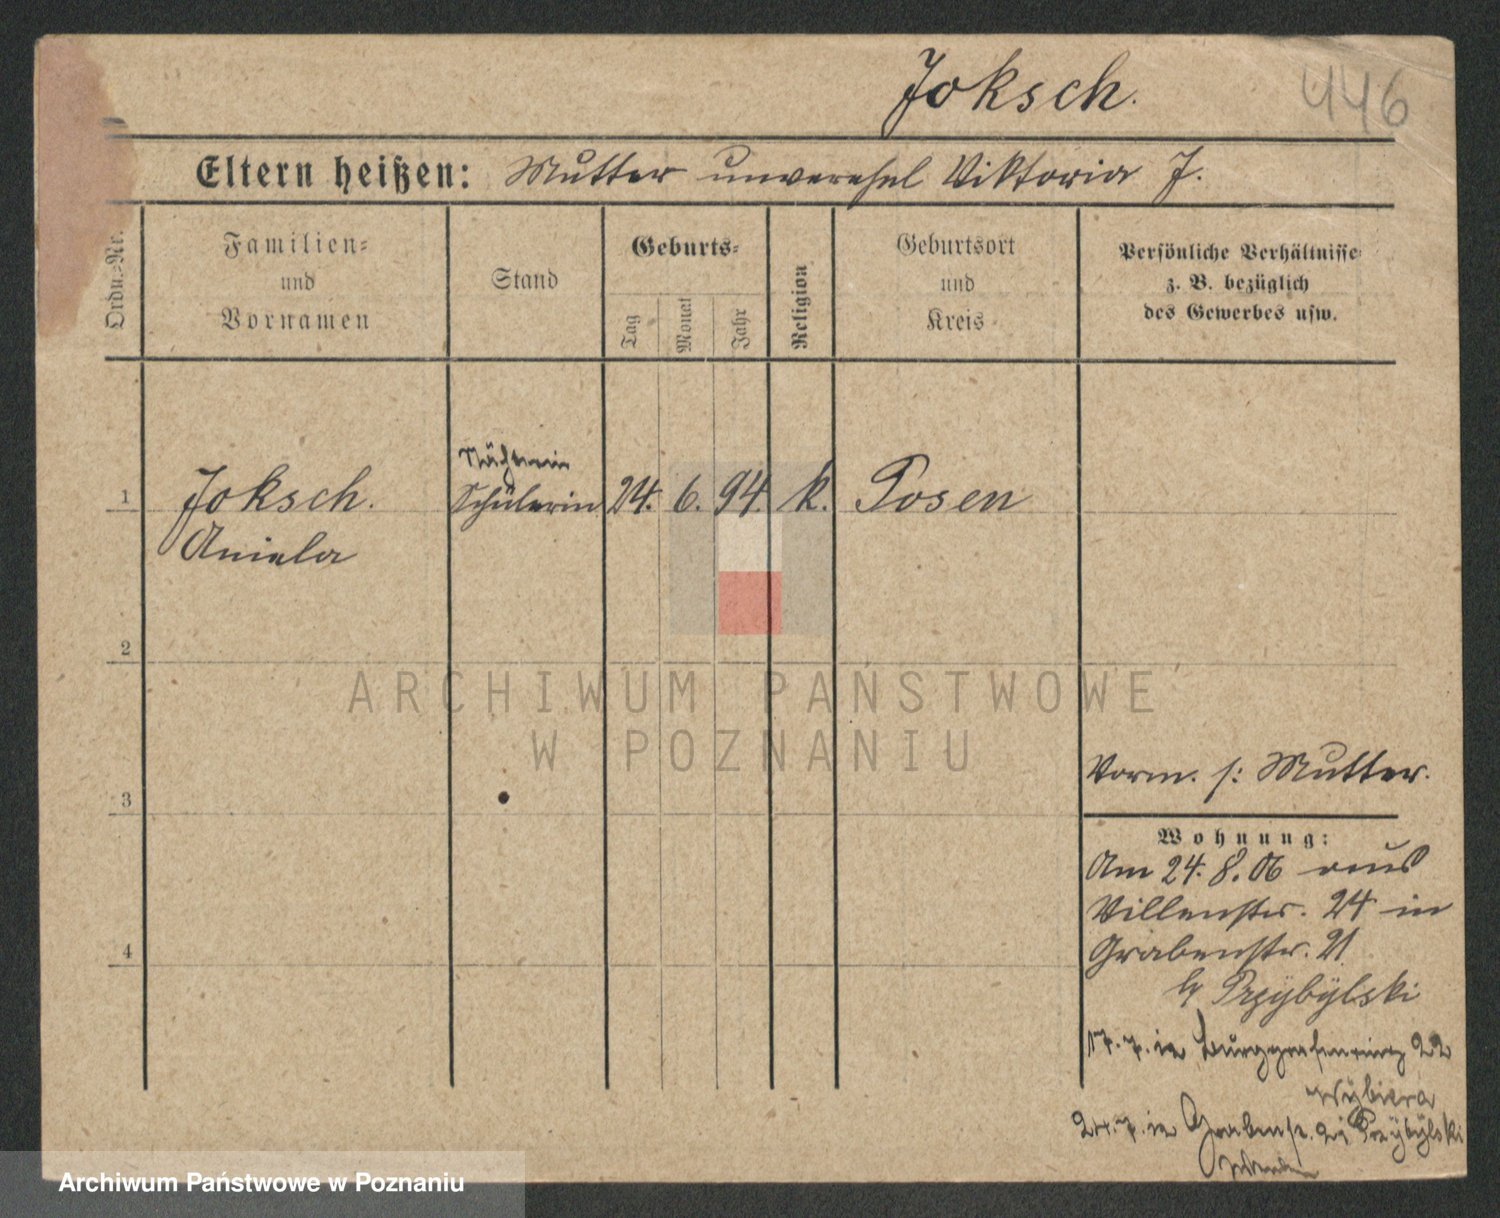 Joksch.
446
Eltern heißen: Mutter unverehel Viktoria J.
Ordn.-Nr.
Familien-
und
Vornamen
Stand
Geburts-
Tag
Monat
Jahr
Religion
Geburtsort
und
Kreis
Persönliche Verhältnisse
z. B. bezüglich
des Gewerbes usw.
Nähterin
1 Joksch. Schülerin 24. 6. 94. k. Posen
Aniela
2
ARCHIWUM PAŃSTWOWE
W POZNANIU
Vorm. s: Mutter.
3
Wohnung:
Am 24. 8. 06 aus
Villenstr. 24 in
Grabenstr. 21
4
b/ Przybylski
17. 7. in Burggrafenring 22
24. 7. in Grabenstr. 21 Przybylski
Archiwum Państwowe w Poznaniu